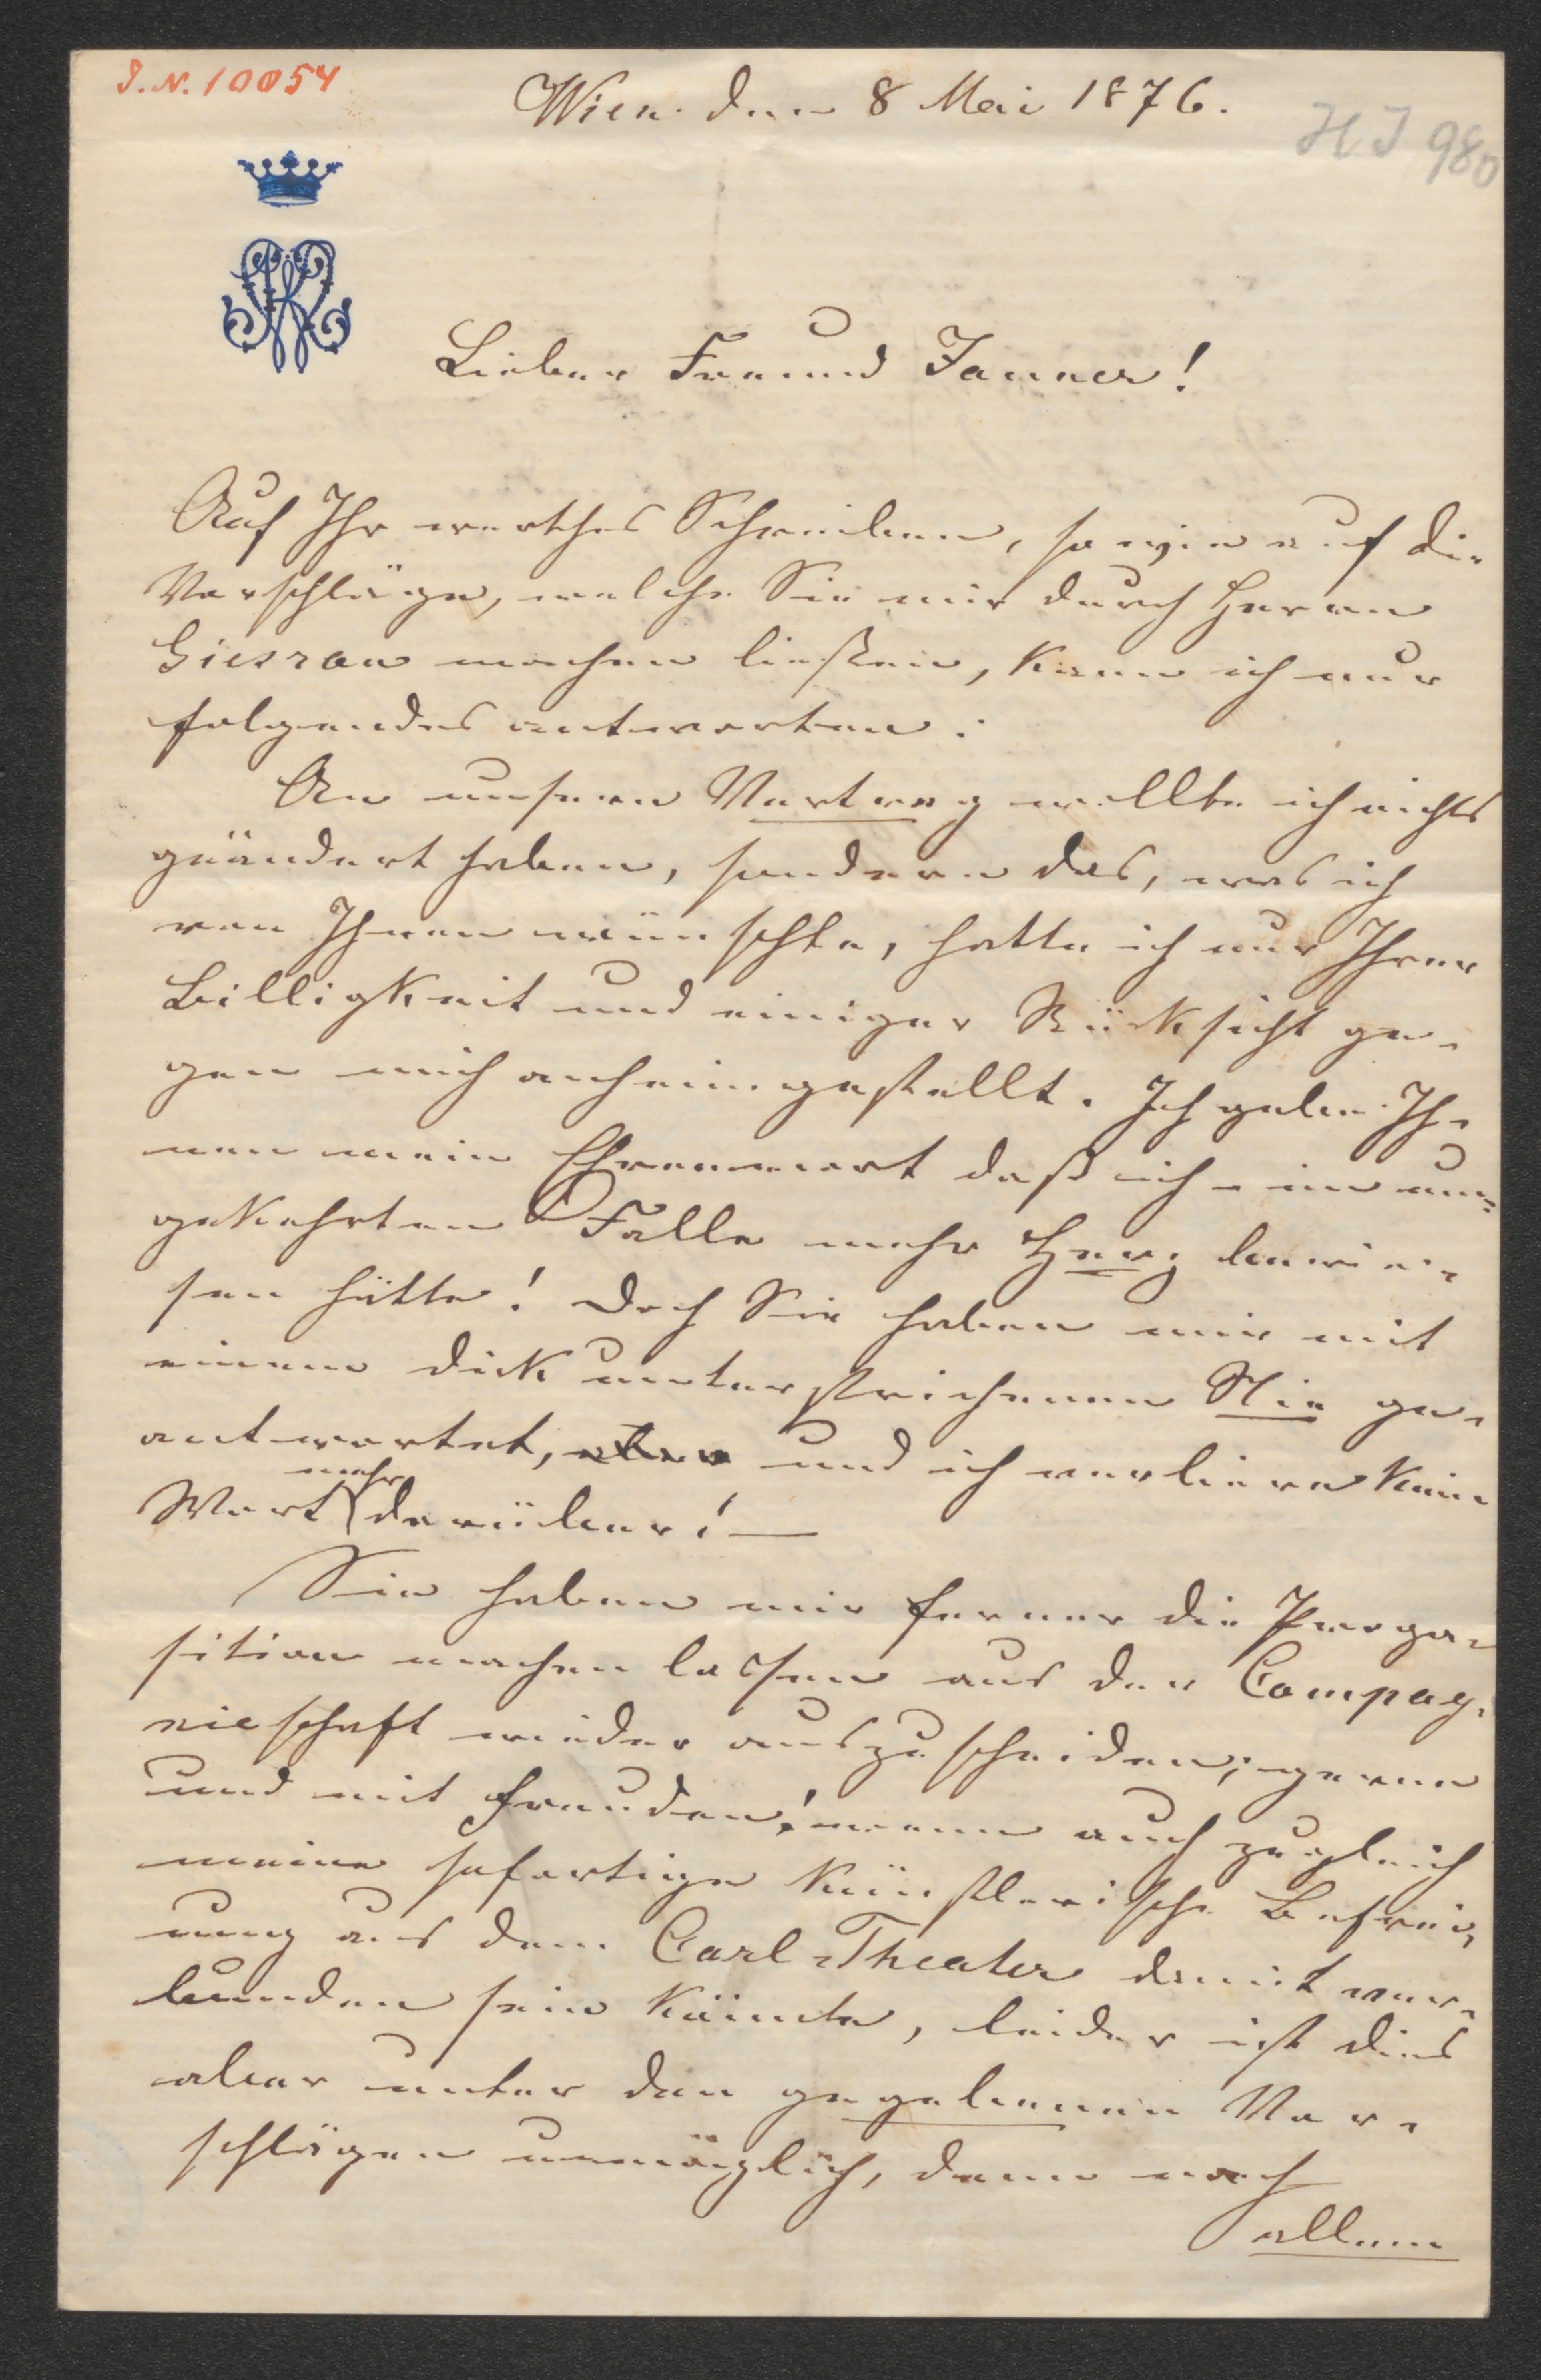 J.N. 10054
Wien. den 8 Mai 1876.
HJ 980
Lieber Freund Jauner!
Auf Ihr werthes Schreiben, so wie auf die
Vorschläge, welche Sie mir durch Herrn
Giesrau machen ließen, kann ich nur
folgendes antworten:
An unseren Vertrag wollte ich nichts
geändert haben, sondern das, was ich
von Ihnen wünschte, hatte ich nur Ihrer
Billigkeit und einiger Rücksicht ge-
gen mich anheimgestellt. Ich gebe Ih-
nen mein Ehrenwort daß ich im um-
gekehrten Falle mehr Herz bewie-
sen hätte! Doch Sie haben mir mit
einem dick unterstrichenen Nie ge-
antwortet, und ich verliere kein
mehr
Wort darüber! —
Sie haben mir ferner die Propo-
sition machen lassen aus der Compag-
nieschaft wieder auszuscheiden; gerne
und mit Freuden! wenn auch zugleich
meine sofortige künstlerische Befrei-
ung aus dem Carl-Theater damit ver-
bunden sein könnte, leider ist dies
aber unter den gegebenen Vor-
schlägen unmöglich, denn nach
allem